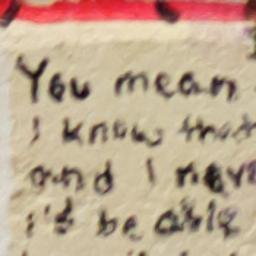 You mean
I know that
and I never
i'd be able